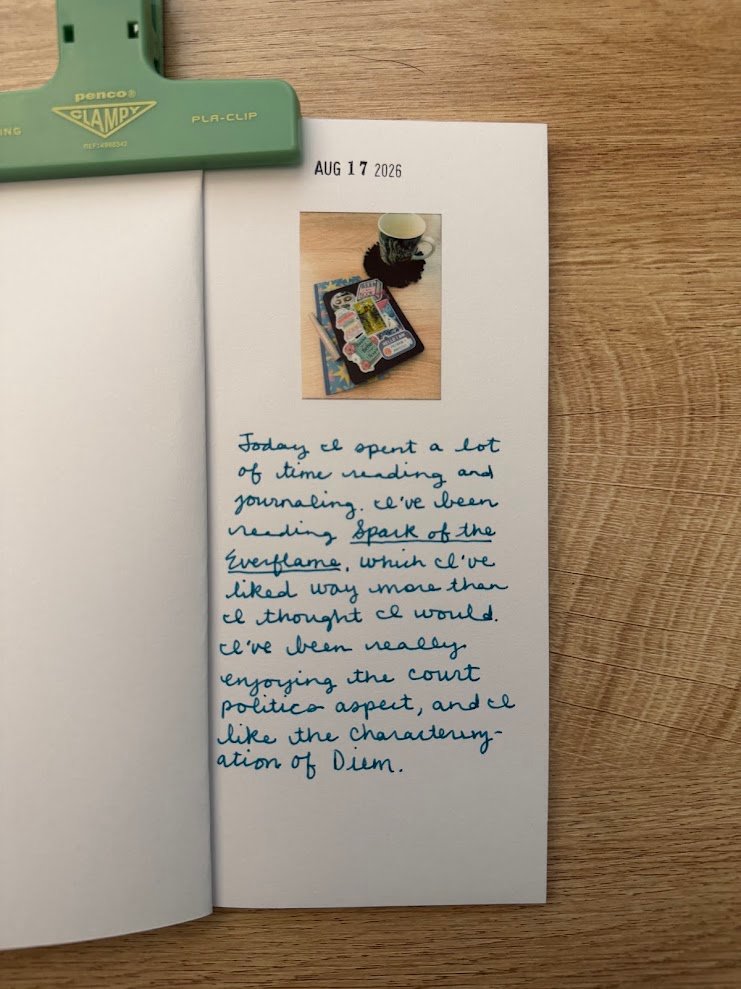 penco®
CLAMPY
ING
PLA-CLIP
AUG 17 2026
Today I spent a lot
of time reading and
journaling. I've been
reading Spark of the
Everflame, which I've
liked way more than
I thought I would.
I've been really
enjoying the court
politics aspect, and I
like the characteriz-
ation of Diem.